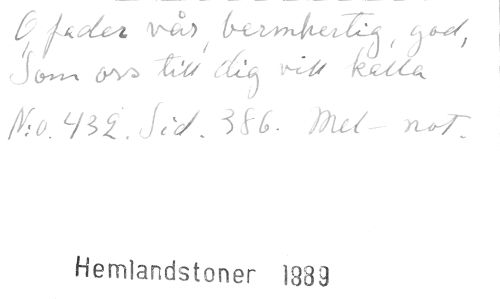 O, fader vår, bermhertig, god,
Som oss till dig vill kalla
N:o. 432. Sid. 386. Mel- not.
Hemlandstoner 1889